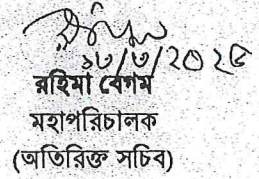 ১৮/৩/২০২৫
রহিমা বেগম
মহাপরিচালক
(অতিরিক্ত সচিব)